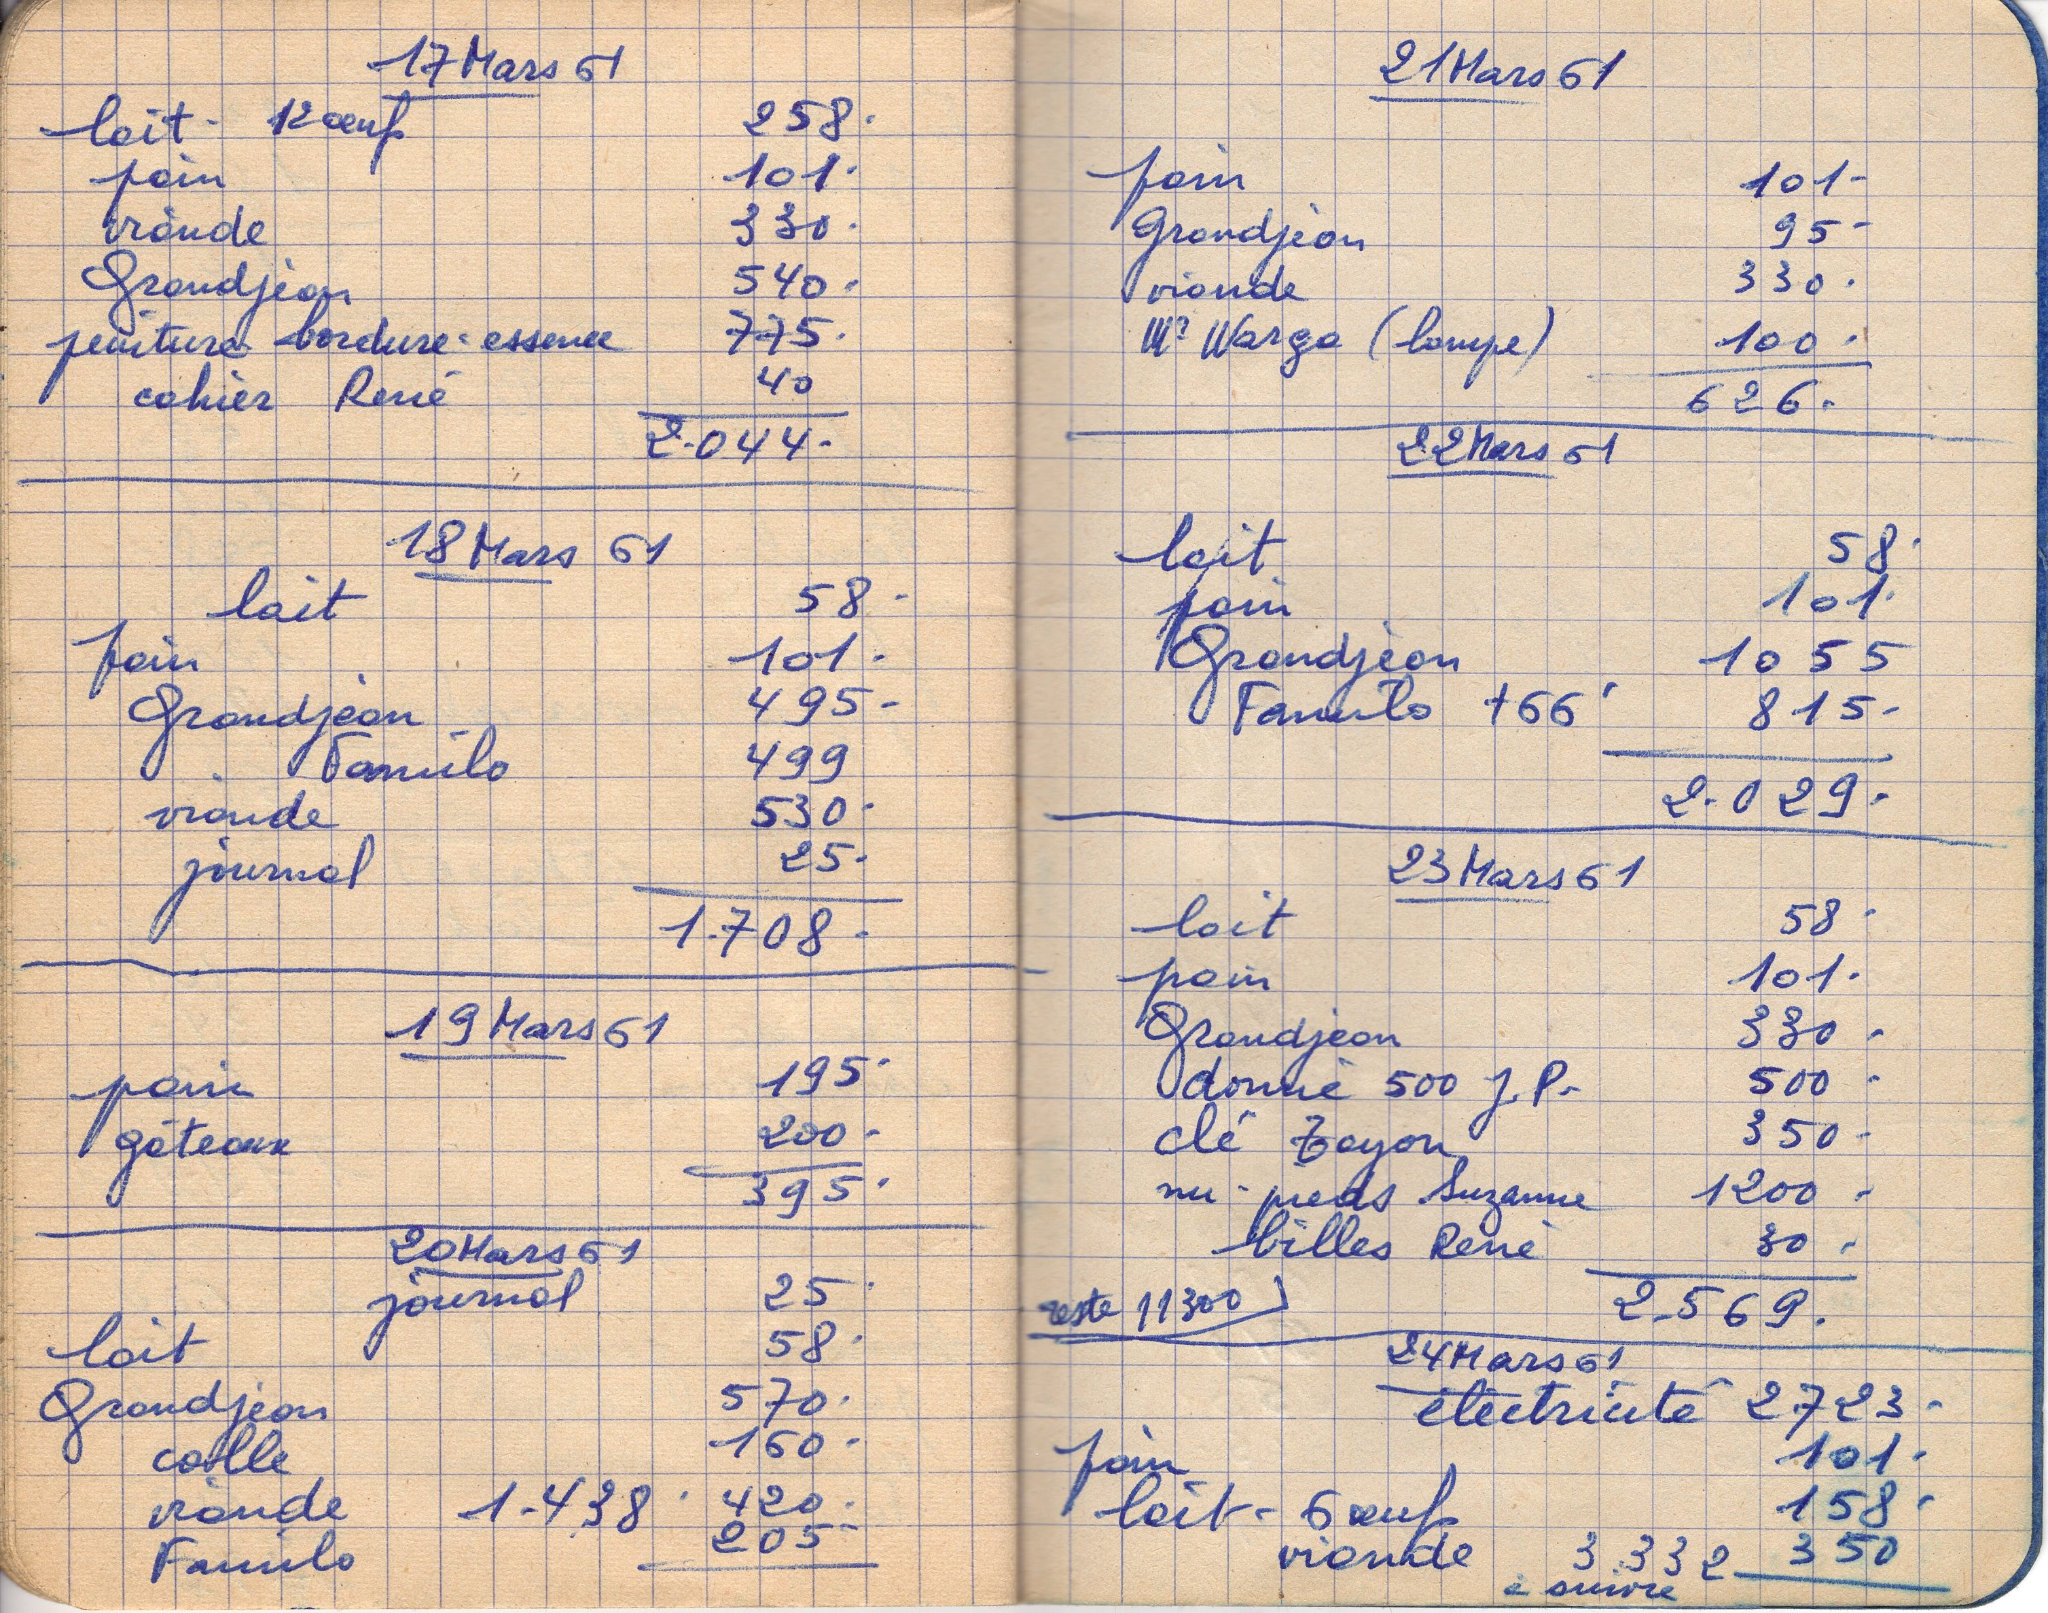 17 Mars 61
lait - 12 œufs 258.
pain 101.
viande 330.
Grandjean 540.
peinture bordure - essence 775.
cahier René 40
2.044.
18 Mars 61
lait 58.
pain 101.
Grandjean 495.
Familo 499
viande 530.
journal 25.
1.708.
19 Mars 61
pain 195.
gâteaux 200.
395.
20 Mars 61
journal 25.
lait 58.
Grandjean 570.
colle 160.
viande 1.438. 420.
Familo 205.
21 Mars 61
pain 101.
Grandjean 95.
viande 330.
Mr Warga (lampe) 100.
626.
22 Mars 61
lait 58.
pain 101.
Grandjean 1055
Familo + 66' 815.
2.029.
23 Mars 61
lait 58.
pain 101.
Grandjean 330.
donné 500 J.P. 500.
clé 350.
nu-pieds Suzanne 1200.
billes René 30.
reste 11300 2.569.
24 Mars 61
électricité 2723.
pain 101.
lait - 6 œufs 158.
viande 3332 350
à suivre